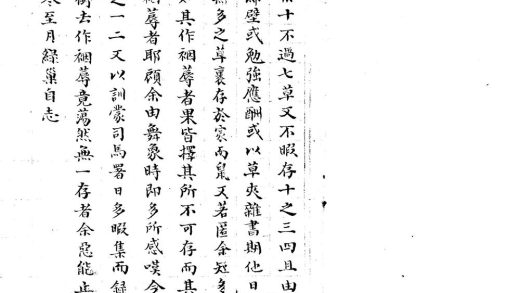 十不過七草又不暇存十之三四且由
壁或勉強應酬或以草夾雜書期他日
無多之草裹存於家而鼠又若匿余短多
其作裀蓐者果皆擇其所不可存而其
裀蓐者耶顧余由舞象時即多所感嘆今
之一二又以訓蒙司馬署日多暇集而録
衔去作裀蓐竟蕩然無一存者余惡能
至月緑巢自志